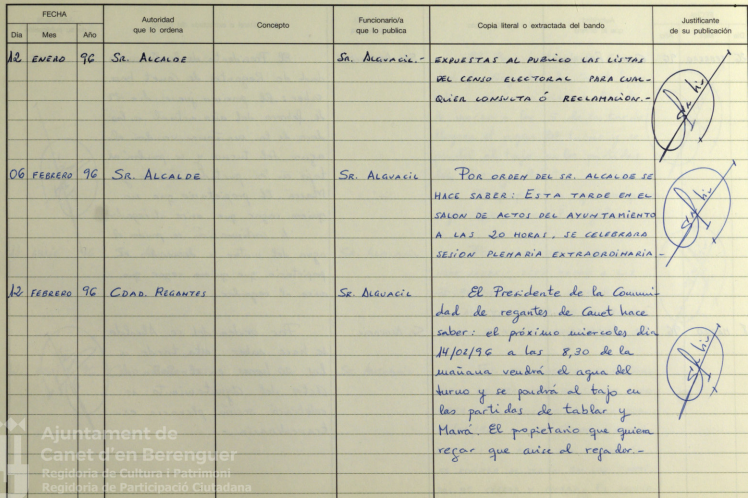 FECHA
Día Mes Año
Autoridad
que lo ordena
Concepto
Funcionario/a
que lo publica
Copia literal o extractada del bando
Justificante
de su publicación
12 ENERO 96 SR. ALCALDE SR. ALGUACIL.- EXPUESTAS AL PUBLICO LAS LISTAS
DEL CENSO ELECTORAL PARA CUAL-
QUIER CONSULTA Ó RECLAMACION.-
06 FEBRERO 96 SR. ALCALDE SR. ALGUACIL POR ORDEN DEL SR. ALCALDE SE
HACE SABER: ESTA TARDE EN EL
SALON DE ACTOS DEL AYUNTAMIENTO
A LAS 20 HORAS, SE CELEBRARA
SESION PLENARIA EXTRAORDINARIA-
12 FEBRERO 96 CDAD. REGANTES SR. ALGUACIL El Presidente de la Comuni-
dad de regantes de Canet hace
saber: el próximo miercoles dia
14/02/96 a las 8,30 de la
mañana vendrá el agua del
turno y se pondrá al tajo en
las partidas de tablar y
Marrá. El propietario que quiera
regar que avise al regador.-
Ajuntament de
Canet d'en Berenguer
Regidoria de Cultura i Patrimoni
Regidoria de Participació Ciutadana